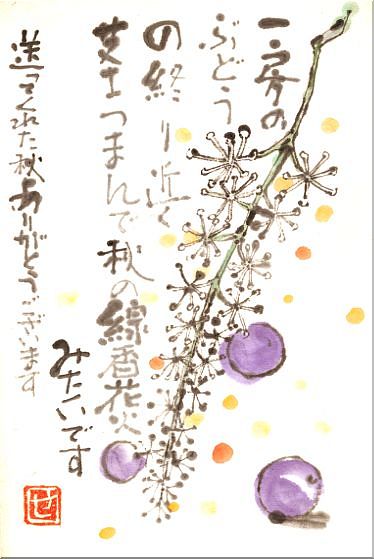 一房の
ぶどう
の終り近く
芝をつまんで秋の線香花火
みたいです
送ってくれた秋ありがとうございます